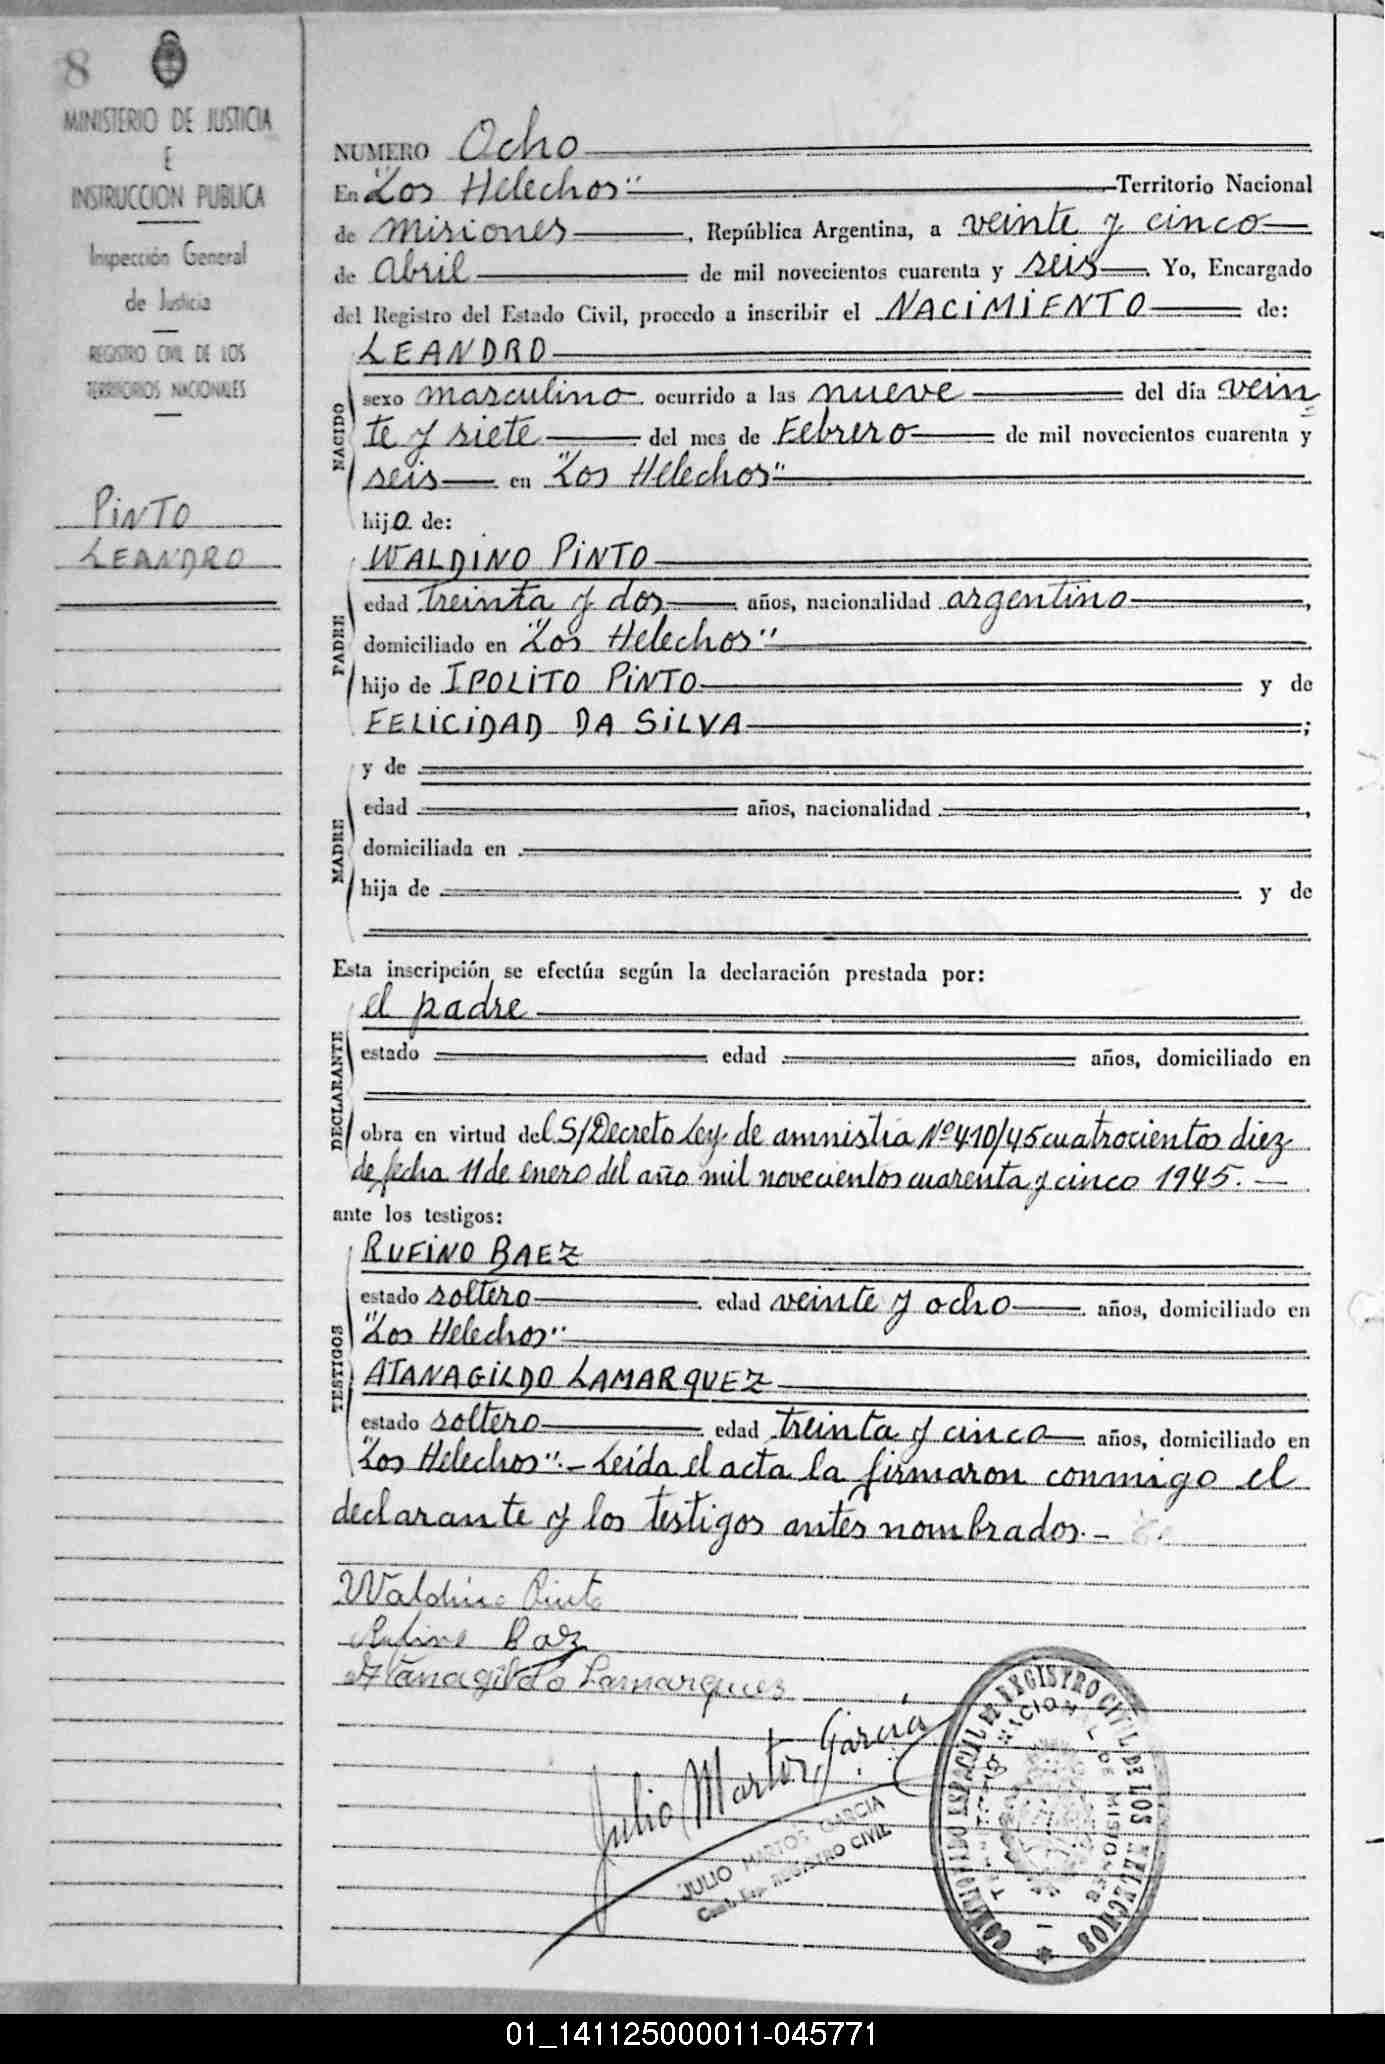 8
MINISTERIO DE JUSTICIA
E
INSTRUCCION PUBLICA
Inspección General
de Justicia
REGISTRO CIVIL DE LOS
TERRITORIOS NACIONALES
PINTO
LEANDRO
NUMERO Ocho
En "Los Helechos" Territorio Nacional
de Misiones, República Argentina, a veinte y cinco
de Abril de mil novecientos cuarenta y seis. Yo, Encargado
del Registro del Estado Civil, procedo a inscribir el NACIMIENTO de:
LEANDRO
NACIDO
sexo masculino ocurrido a las nueve del día vein
te y siete del mes de Febrero de mil novecientos cuarenta y
seis en "Los Helechos"
hijo de:
WALDINO PINTO
PADRE
edad treinta y dos años, nacionalidad argentino,
domiciliado en "Los Helechos"
hijo de IPOLITO PINTO y de
FELICIDAD DA SILVA;
MADRE
y de
edad años, nacionalidad,
domiciliada en
hija de y de
Esta inscripción se efectúa según la declaración prestada por:
DECLARANTE
el padre
estado edad años, domiciliado en
obra en virtud del S/Decreto Ley de amnistia Nº 410/45 cuatrocientos diez
de fecha 11 de enero del año mil novecientos cuarenta y cinco 1945.-
ante los testigos:
TESTIGOS
RUFINO BAEZ
estado soltero edad veinte y ocho años, domiciliado en
"Los Helechos"
ATANAGILDO LAMARQUEZ
estado soltero edad treinta y cinco años, domiciliado en
"Los Helechos".- Leída el acta la firmaron conmigo el
declarante y los testigos antes nombrados.-
Waldino Pinto
Rufino Baz
Atanagildo Lamarques
Julio Martos García
JULIO MARTOS GARCIA
REGISTRO CIVIL
COMISIONADO ESPECIAL DE REGISTRO CIVIL DE LOS HELECHOS
TERRITORIO NACIONAL DE MISIONES
01_141125000011-045771